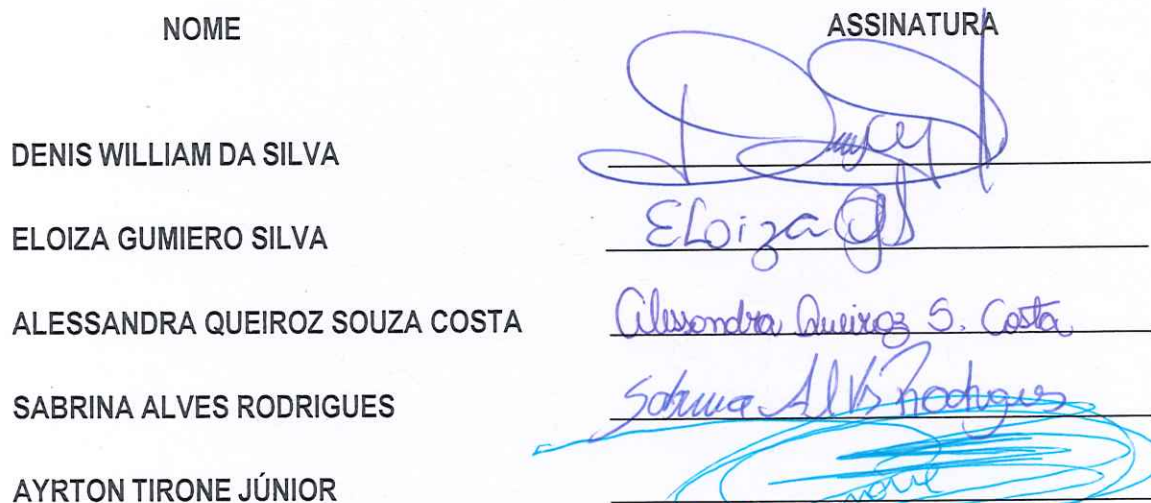 NOME ASSINATURA
DENIS WILLIAM DA SILVA
ELOIZA GUMIERO SILVA Eloiza GS
ALESSANDRA QUEIROZ SOUZA COSTA Alessandra Queiroz S. Costa
SABRINA ALVES RODRIGUES Sabrina Alves Rodrigues
AYRTON TIRONE JÚNIOR